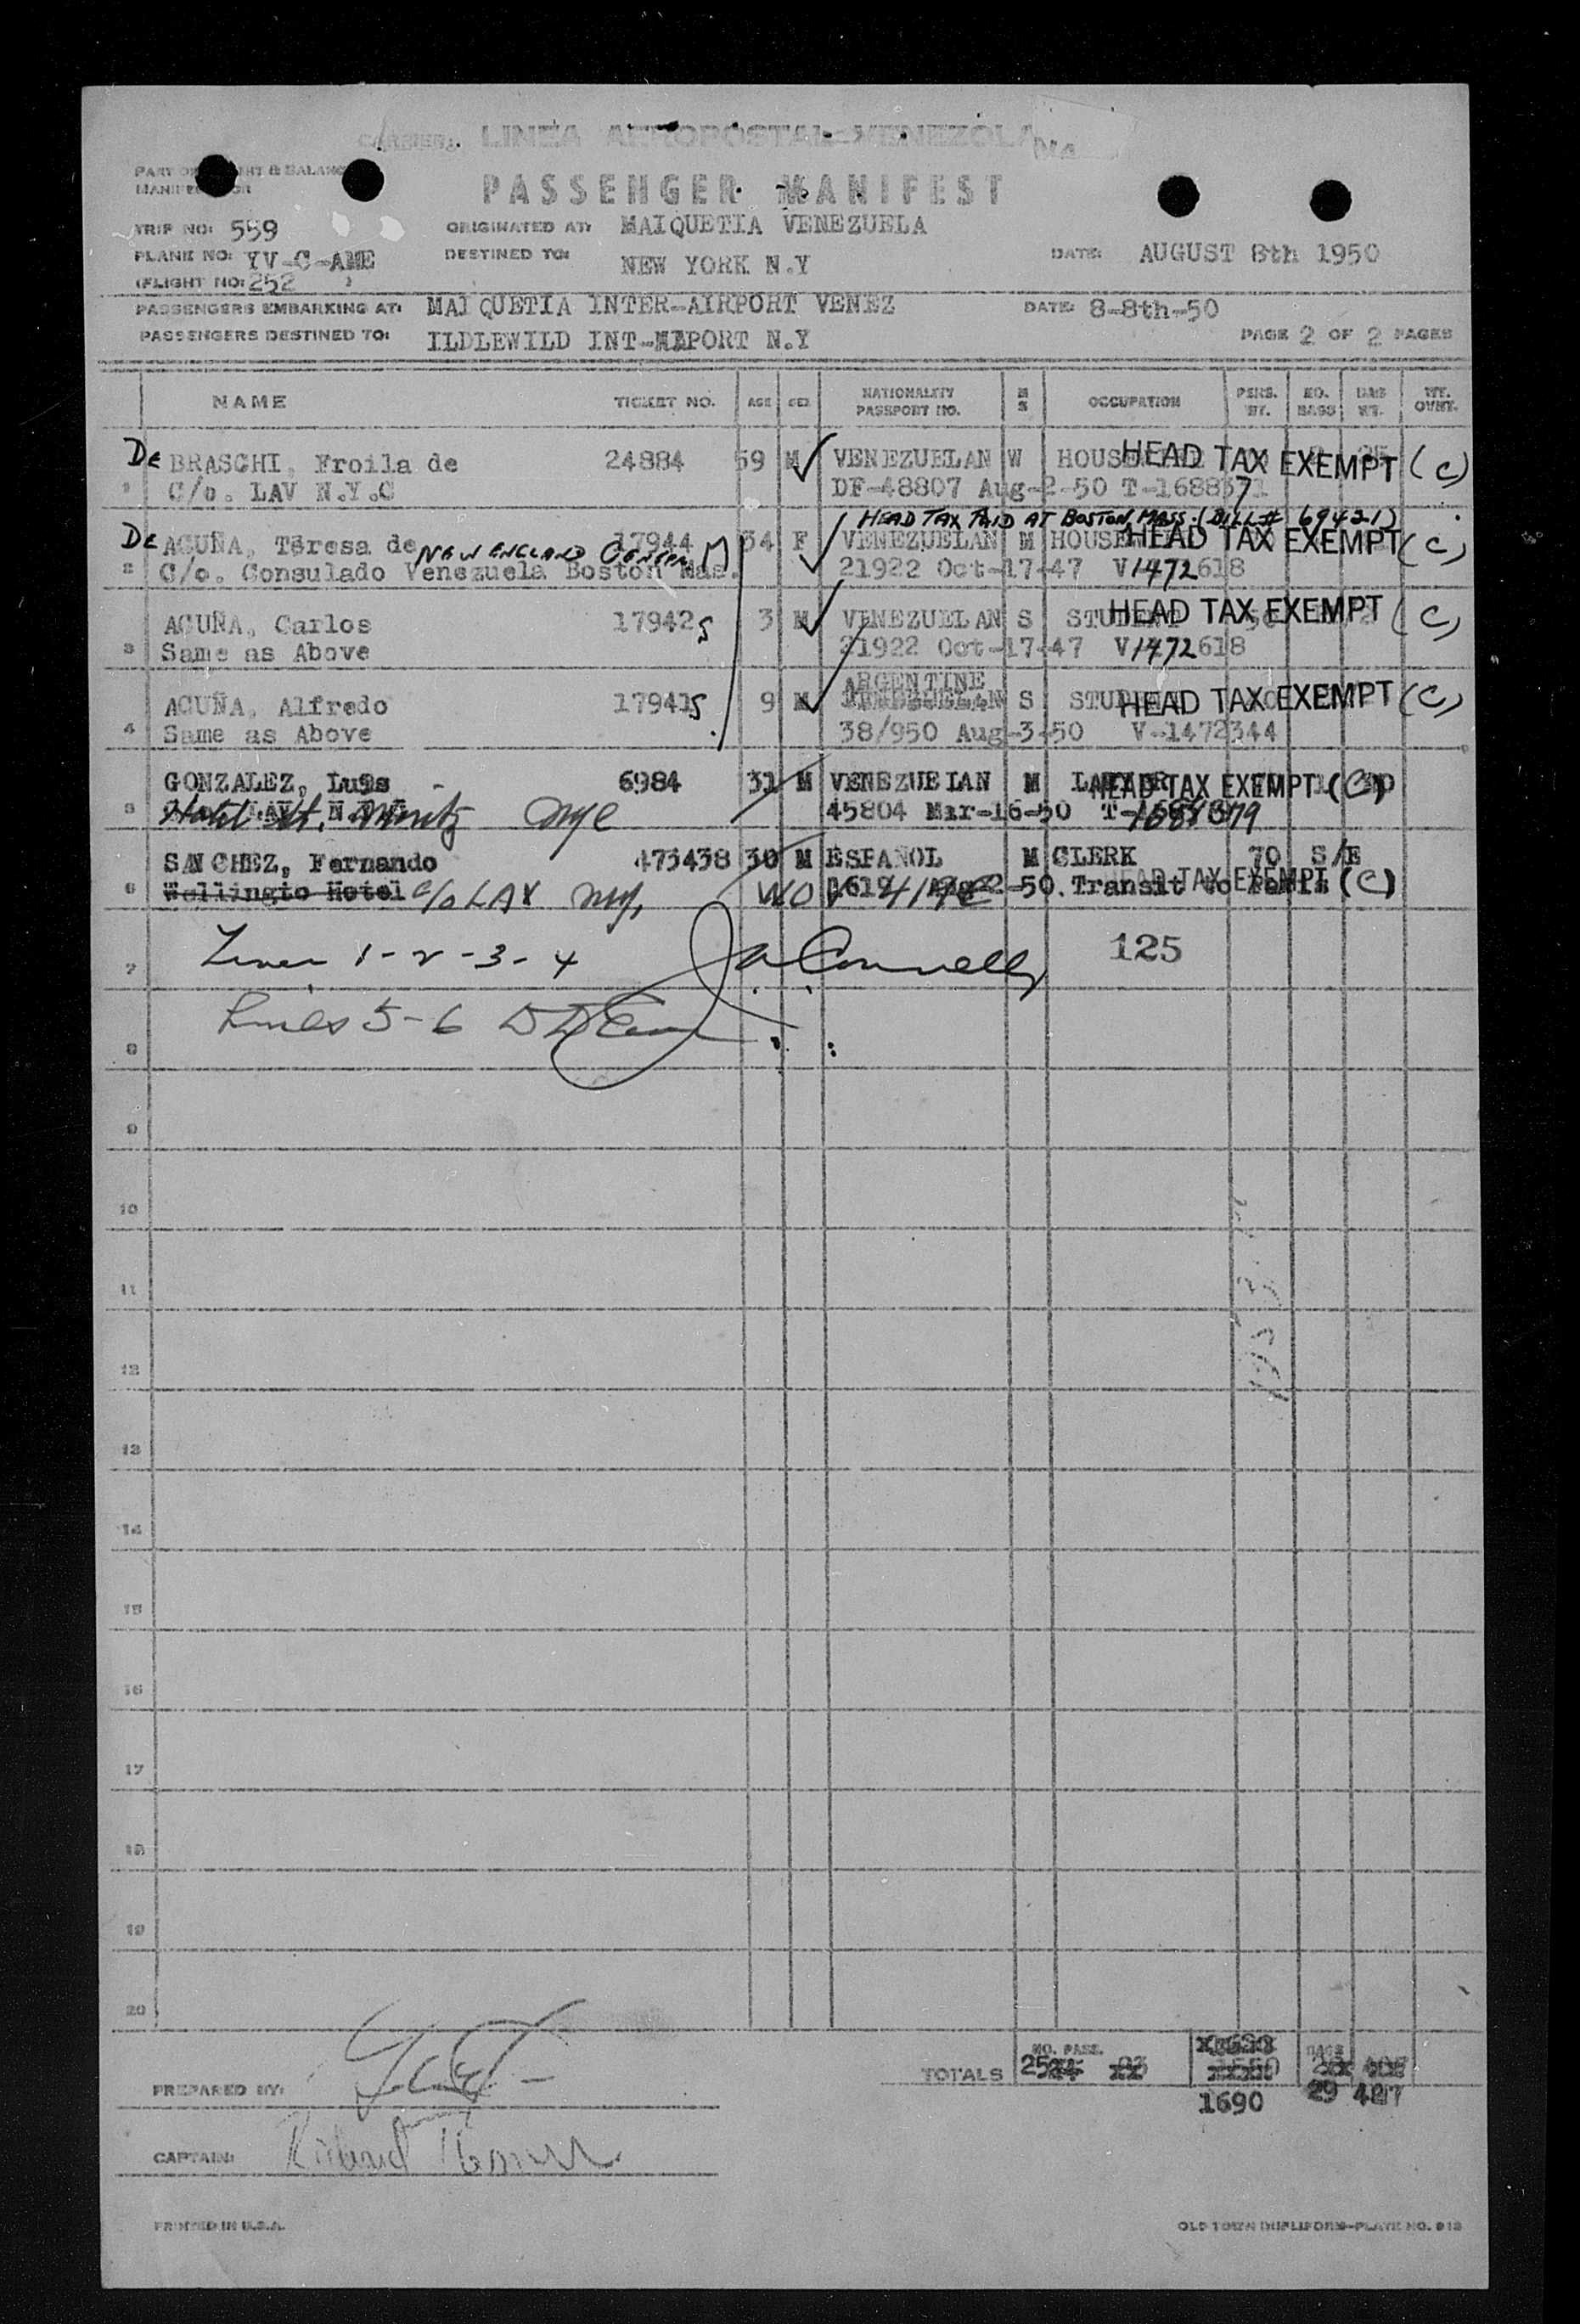 CARRIER: LINEA AEROPOSTAL VENEZOLA
PASSENGER MANIFEST
TRIP NO: 559 ORIGINATED AT: MAIQUETIA VENEZUELA
PLANE NO: YV-C-AME DESTINED TO: NEW YORK N.Y DATE: AUGUST 8th 1950
(FLIGHT NO: 252 )
PASSENGERS EMBARKING AT: MAIQUETIA INTER-AIRPORT VENEZ DATE: 8-8th-50
PASSENGERS DESTINED TO: ILDLEWILD INT- N.Y PAGE 2 OF 2 PAGES
NAME TICKET NO. AGE SEX NATIONALITY PASSPORT NO. M S OCCUPATION PERS. WT. NO. BAGS BAG WT. WT. OVHT.
1 De BRASCHI, Froila de 24884 59 M VENEZUELAN W HEAD TAX EXEMPT (C)
C/o. LAV N.Y.C DF-48807 Aug-2-50 T-1688371
HEAD TAX PAID AT BOSTON, MASS. (BILL# 69421)
2 De ACUÑA, Teresa de NEW ENGLAND 17944 34 F VENEZUELAN M HEAD TAX EXEMPT (C)
C/o. Consulado Venezuela Boston Mas. 21922 Oct-17-47 V1472618
3 ACUÑA, Carlos 17942 3 M VENEZUELAN S STUDENT HEAD TAX EXEMPT (C)
Same as Above 21922 Oct-17-47 V1472618
ARGENTINE
4 ACUÑA, Alfredo 17941 9 M S STUDENT HEAD TAX EXEMPT (C)
Same as Above 38/950 Aug-3-50 V-1472344
5 GONZALEZ, Luis 6984 31 M VENEZUELAN M HEAD TAX EXEMPT (C)
Hotel St. Moritz nyc 45804 Mar-16-50 T-1688379
6 SANCHEZ, Fernando 473438 30 M ESPAÑOL M CLERK 70 S/E
Wellingto Hotel c/o LAV 50. Transit to Paris HEAD TAX EXEMPT (C)
7 Lines 1-2-3-4 Connelly 125
8 Lines 5-6
9
10
11
12
13
14
15
16
17
18
19
20
TOTALS NO. PASS. 25 BAGS
1690 29 427
PREPARED BY:
CAPTAIN: Richard
PRINTED IN U.S.A. OLD TOWN DUPLIFORM-PLATE NO. 913